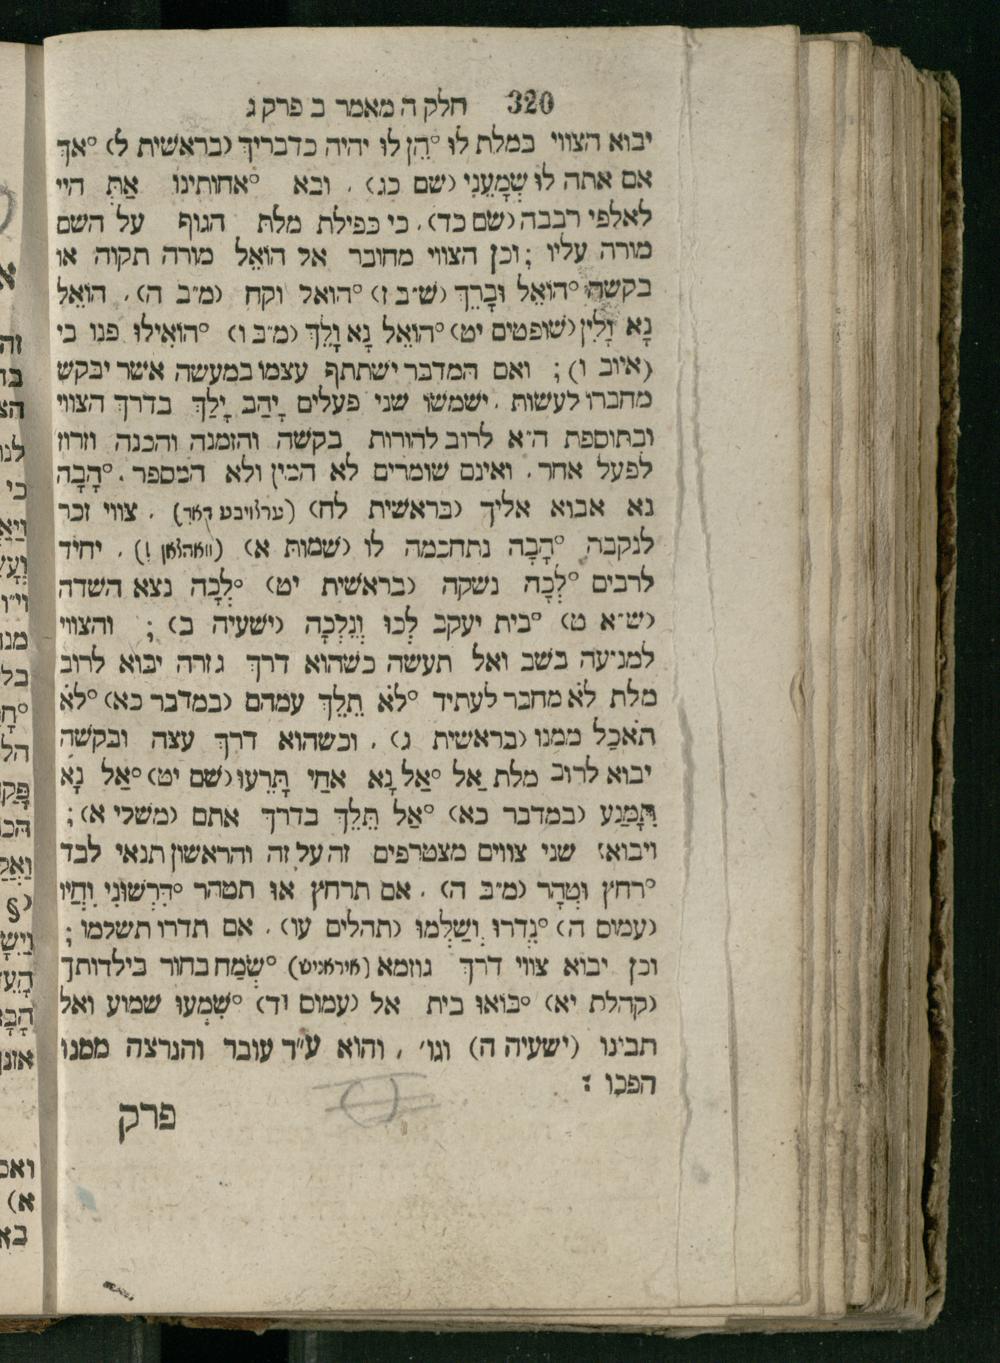 320 חלק ה מאמר ב פרק ג
יבוא הצווי במלת לוּ °הֵן לוּ יהיה כדבריך (בראשית ל) °אך
אם אתה לוּ שְׁמָעֵנִי (שם כג) . ובא °אחותינו אַתְּ היי
לאלפי רבבה (שם כד) . כי כפילת מלת הגוף על השם
מורה עליו ; וכן הצווי מחובר אל הוֹאֵל מורה תקוה או
בקשה °הוֹאֵל וּבָרֵךְ (ש״ב ז) °הואל וקח (מ״ב ה) . הוֹאֵל
נָא וָלִין (שופטים יט) °הוֹאֵל נָא וָלֵךְ (מ״ב ו) °הוֹאִילוּ פנו בי
(איוב ו) ; ואם המדבר ישתתף עצמו במעשה אשר יבקש
מחברו לעשות . ישמשו שני פעלים יָהַב יָלַךְ בדרך הצווי
ובתוספת ה״א לרוב להורות בקשה והזמנה והכנה וזרוז
לפעל אחר . ואינם שומרים לא המין ולא המספר . °הָבָה
נא אבוא אליך (בראשית לח) (ערלויבע דאך) . צווי זכר
לנקבה °הָבָה נתחכמה לו (שמות א) (וואהלאן !) . יחיד
לרבים °לְכָה נשקה (בראשית יט) °לְכָה נצא השדה
(ש״א ט) °בית יעקב לְכוּ וְנֵלְכָה (ישעיה ב) ; והצווי
למניעה בשב ואל תעשה כשהוא דרך גזרה יבוא לרוב
מלת לֹא מחבר לעתיד °לֹא תֵלֵךְ עמהם (במדבר כא) °לֹא
תֹאכַל ממנו (בראשית ג) . וכשהוא דרך עצה ובקשה
יבוא לרוב מלת אַל °אַל נָא אחַי תָּרֵעוּ (שם יט) °אַל נָא
תִּמָּנַע (במדבר כא) °אַל תֵּלֵךְ בדרך אתם (משלי א) ;
ויבואו שני צווים מצטרפים זה על זה והראשון תנאי לבד
°רחץ וּטְהָר (מ״ב ה) . אם תרחץ או תטהר °דִּרְשׁוּנִי וִחְיוּ
(עמוס ה) °נִדֲרוּ וְשַׁלְּמוּ (תהלים עו) . אם תדרו תשלמו ;
וכן יבוא צווי דרך גוזמא (איראניש) °שְׂמַח בחור בילדותך
(קהלת יא) °בּוֹאוּ בית אל (עמוס יד) °שִׁמְעוּ שמוע ואל
תבינו (ישעיה ה) וגו׳ . והוא ע״ר עובר והנרצה ממנו
הפכו :
פרק